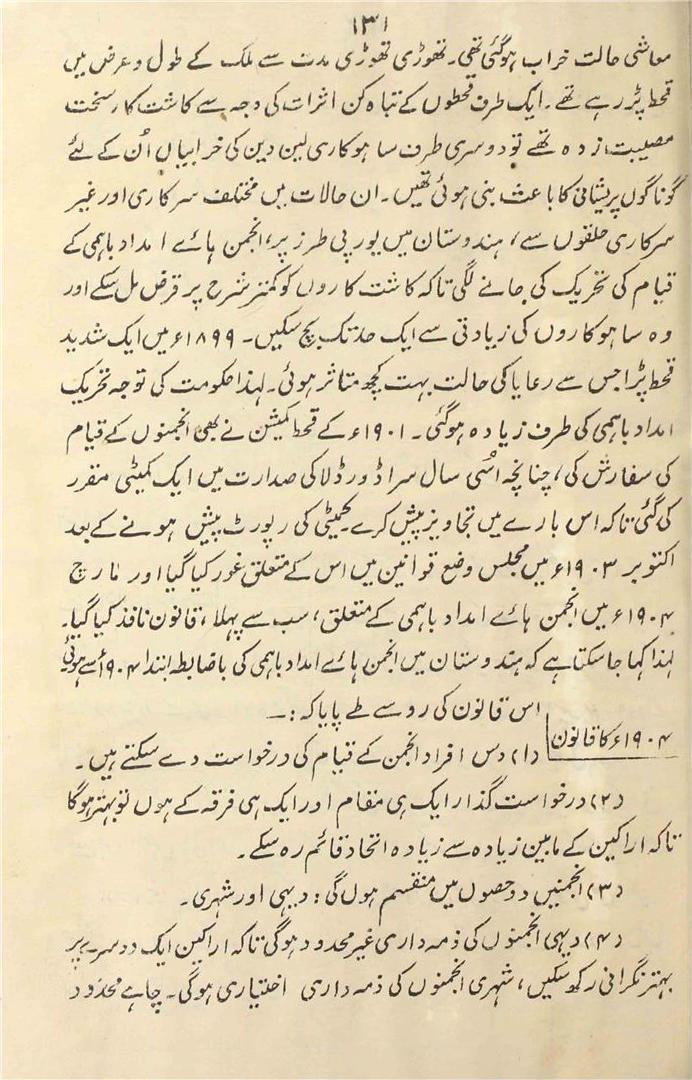 ۱۳۱
معاشی حالت خراب ہوگئی تھی۔ تھوڑی تھوڑی مدت سے ملک کے طول و عرض میں
قحط پڑ رہے تھے۔ ایک طرف قحطوں کے تباہ کن اثرات کی وجہ سے کاشت کار سخت
مصیبت زدہ تھے تو دوسری طرف ساہوکاری لین دین کی خرابیاں اُن کے لئے
گوناگوں پریشانی کا باعث بنی ہوئی تھیں۔ ان حالات میں مختلف سرکاری اور غیر
سرکاری حلقوں سے، ہندوستان میں یورپی طرز پر، انجمن ہائے امداد باہمی کے
قیام کی تحریک کی جانے لگی تاکہ کاشت کاروں کو کمتر شرح پر قرض مل سکے اور
وہ ساہوکاروں کی زیادتی سے ایک حد تک بچ سکیں۔ ۱۸۹۹ء میں ایک شدید
قحط پڑا جس سے رعایا کی حالت بہت کچھ متاثر ہوئی۔ لہذا حکومت کی توجہ تحریک
امداد باہمی کی طرف زیادہ ہوگئی۔ ۱۹۰۱ء کے قحط کمیشن نے بھی انجمنوں کے قیام
کی سفارش کی، چنانچہ اسُی سال سر اڈورڈ لا کی صدارت میں ایک کمیٹی مقرر
کی گئی تاکہ اس بارے میں تجاویز پیش کرے۔ کمیٹی کی رپورٹ پیش ہونے کے بعد
اکتوبر ۱۹۰۳ء میں مجلس وضع قوانین میں اس کے متعلق غور کیا گیا اور مارچ
۱۹۰۴ء میں انجمن ہائے امداد باہمی کے متعلق، سب سے پہلا، قانون نافذ کیا گیا۔
لہذا کہا جاسکتا ہے کہ ہندوستان میں انجمن ہائے امداد باہمی کی باضابطہ ابتدا ۱۹۰۴ء سے ہوئی
۱۹۰۴ء کا قانون اس قانون کی رو سے طے پایا کہ :۔
(۱) دس افراد انجمن کے قیام کی درخواست دے سکتے ہیں۔
(۲) درخواست گذار ایک ہی مقام اور ایک ہی فرقہ کے ہوں تو بہتر ہوگا
تاکہ اراکین کے مابین زیادہ سے زیادہ اتحاد قائم رہ سکے۔
(۳) انجمنیں دو حصوں میں منقسم ہوں گی : دیہی اور شہری۔
(۴) دیہی انجمنوں کی ذمہ داری غیر محدود ہوگی تاکہ اراکین ایک دوسرے پر
بہتر نگرانی رکھ سکیں، شہری انجمنوں کی ذمہ داری اختیاری ہوگی۔ چاہے محدود